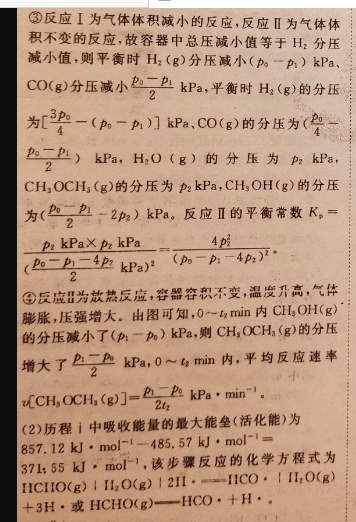 ③反应Ⅰ为气体体积减小的反应,反应Ⅱ为气体体
积不变的反应,故容器中总压减小值等于 H₂ 分压
减小值,则平衡时 H₂(g)分压减小(p₀－p₁) kPa、
CO(g)分压减小 (p₀－p₁)/2 kPa,平衡时 H₂(g)的分压
为[3p₀/4－(p₀－p₁)] kPa、CO(g)的分压为(p₀/4－
(p₀－p₁)/2) kPa, H₂O(g)的分压为 p₂ kPa,
CH₃OCH₃(g)的分压为 p₂ kPa,CH₃OH(g)的分压
为((p₀－p₁)/2－2p₂) kPa。反应Ⅱ的平衡常数 Kₚ=
(p₂ kPa×p₂ kPa)/((p₀－p₁－4p₂)/2 kPa)²=4p₂²/(p₀－p₁－4p₂)²。
④反应Ⅱ为放热反应,容器容积不变,温度升高,气体
膨胀,压强增大。由图可知,0～t₂ min 内 CH₃OH(g)
的分压减小了(p₁－p₀) kPa,则 CH₃OCH₃(g)的分压
增大了 (p₁－p₀)/2 kPa,0～t₂ min 内,平均反应速率
v[CH₃OCH₃(g)]=(p₁－p₀)/2t₂ kPa·min⁻¹。
(2)历程ⅰ中吸收能量的最大能垒(活化能)为
857.12 kJ·mol⁻¹－485.57 kJ·mol⁻¹＝
371.55 kJ·mol⁻¹,该步骤反应的化学方程式为
HCHO(g)+H₂O(g)+2H·══HCO·+H₂O(g)
+3H·或 HCHO(g)══HCO·+H·。